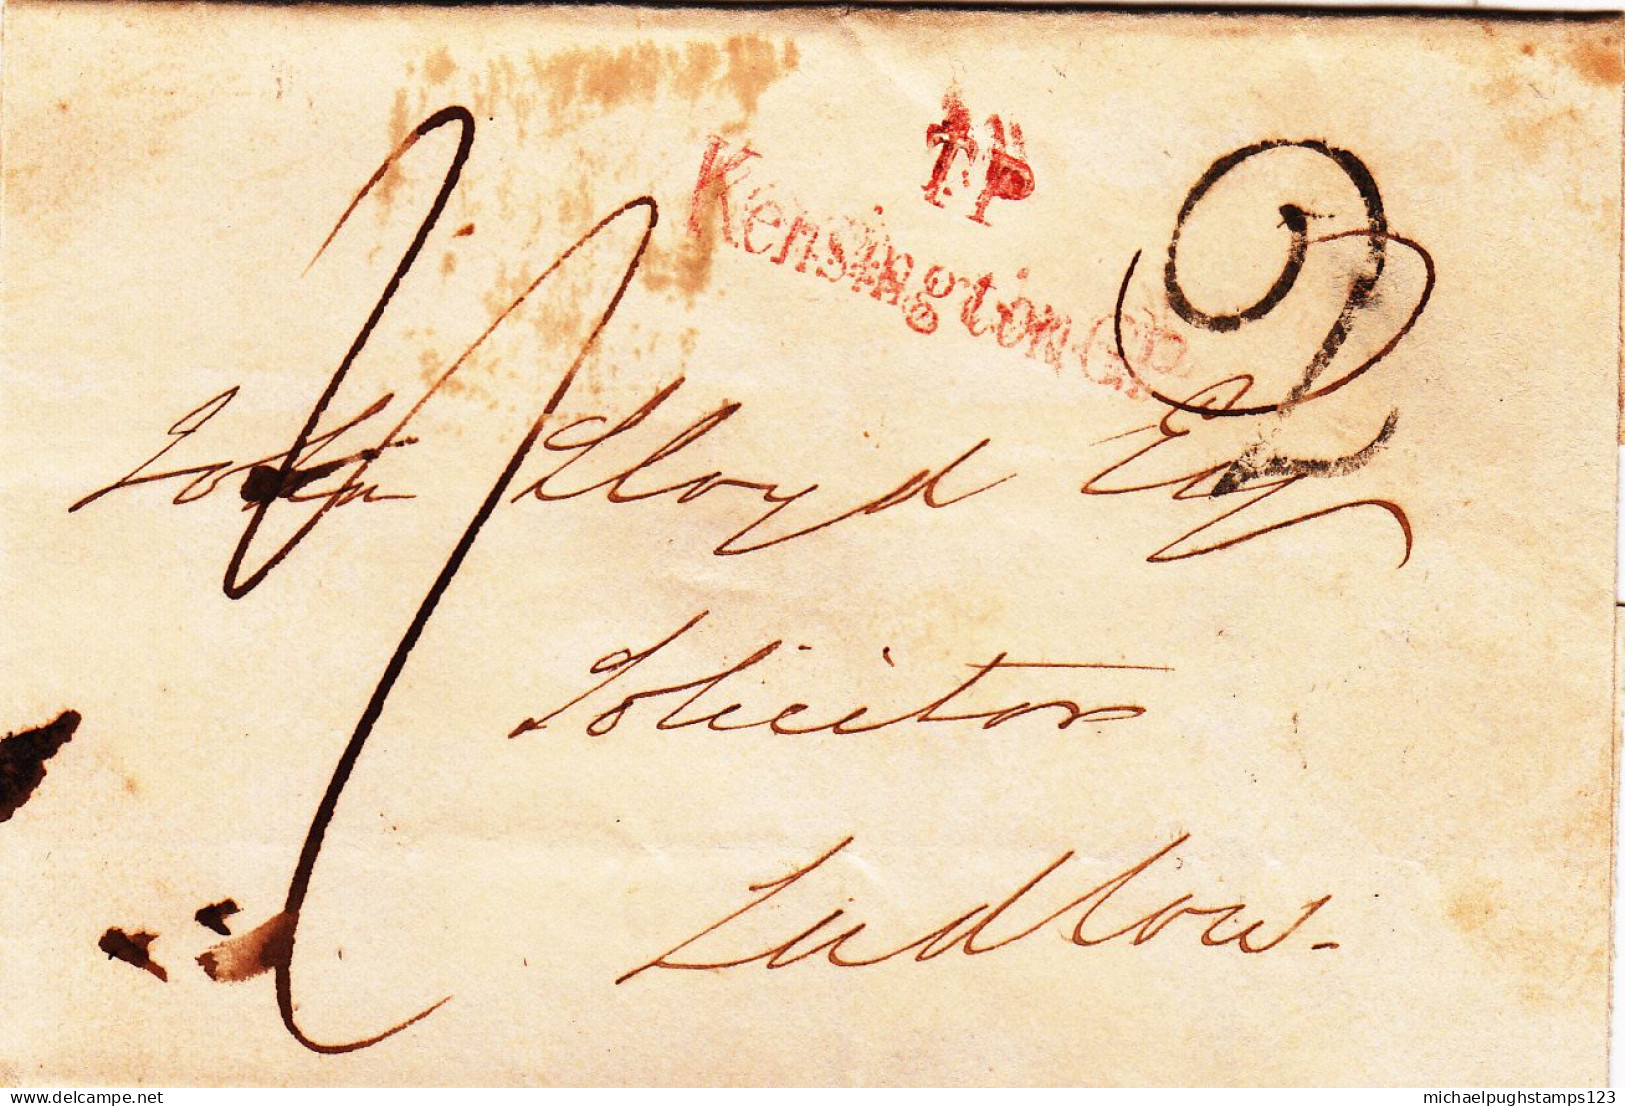 TP
Kensington G.P.
2
John Lloyd Esq
Solicitor
Ludlow.
delcampe.net
michaelpughstamps123